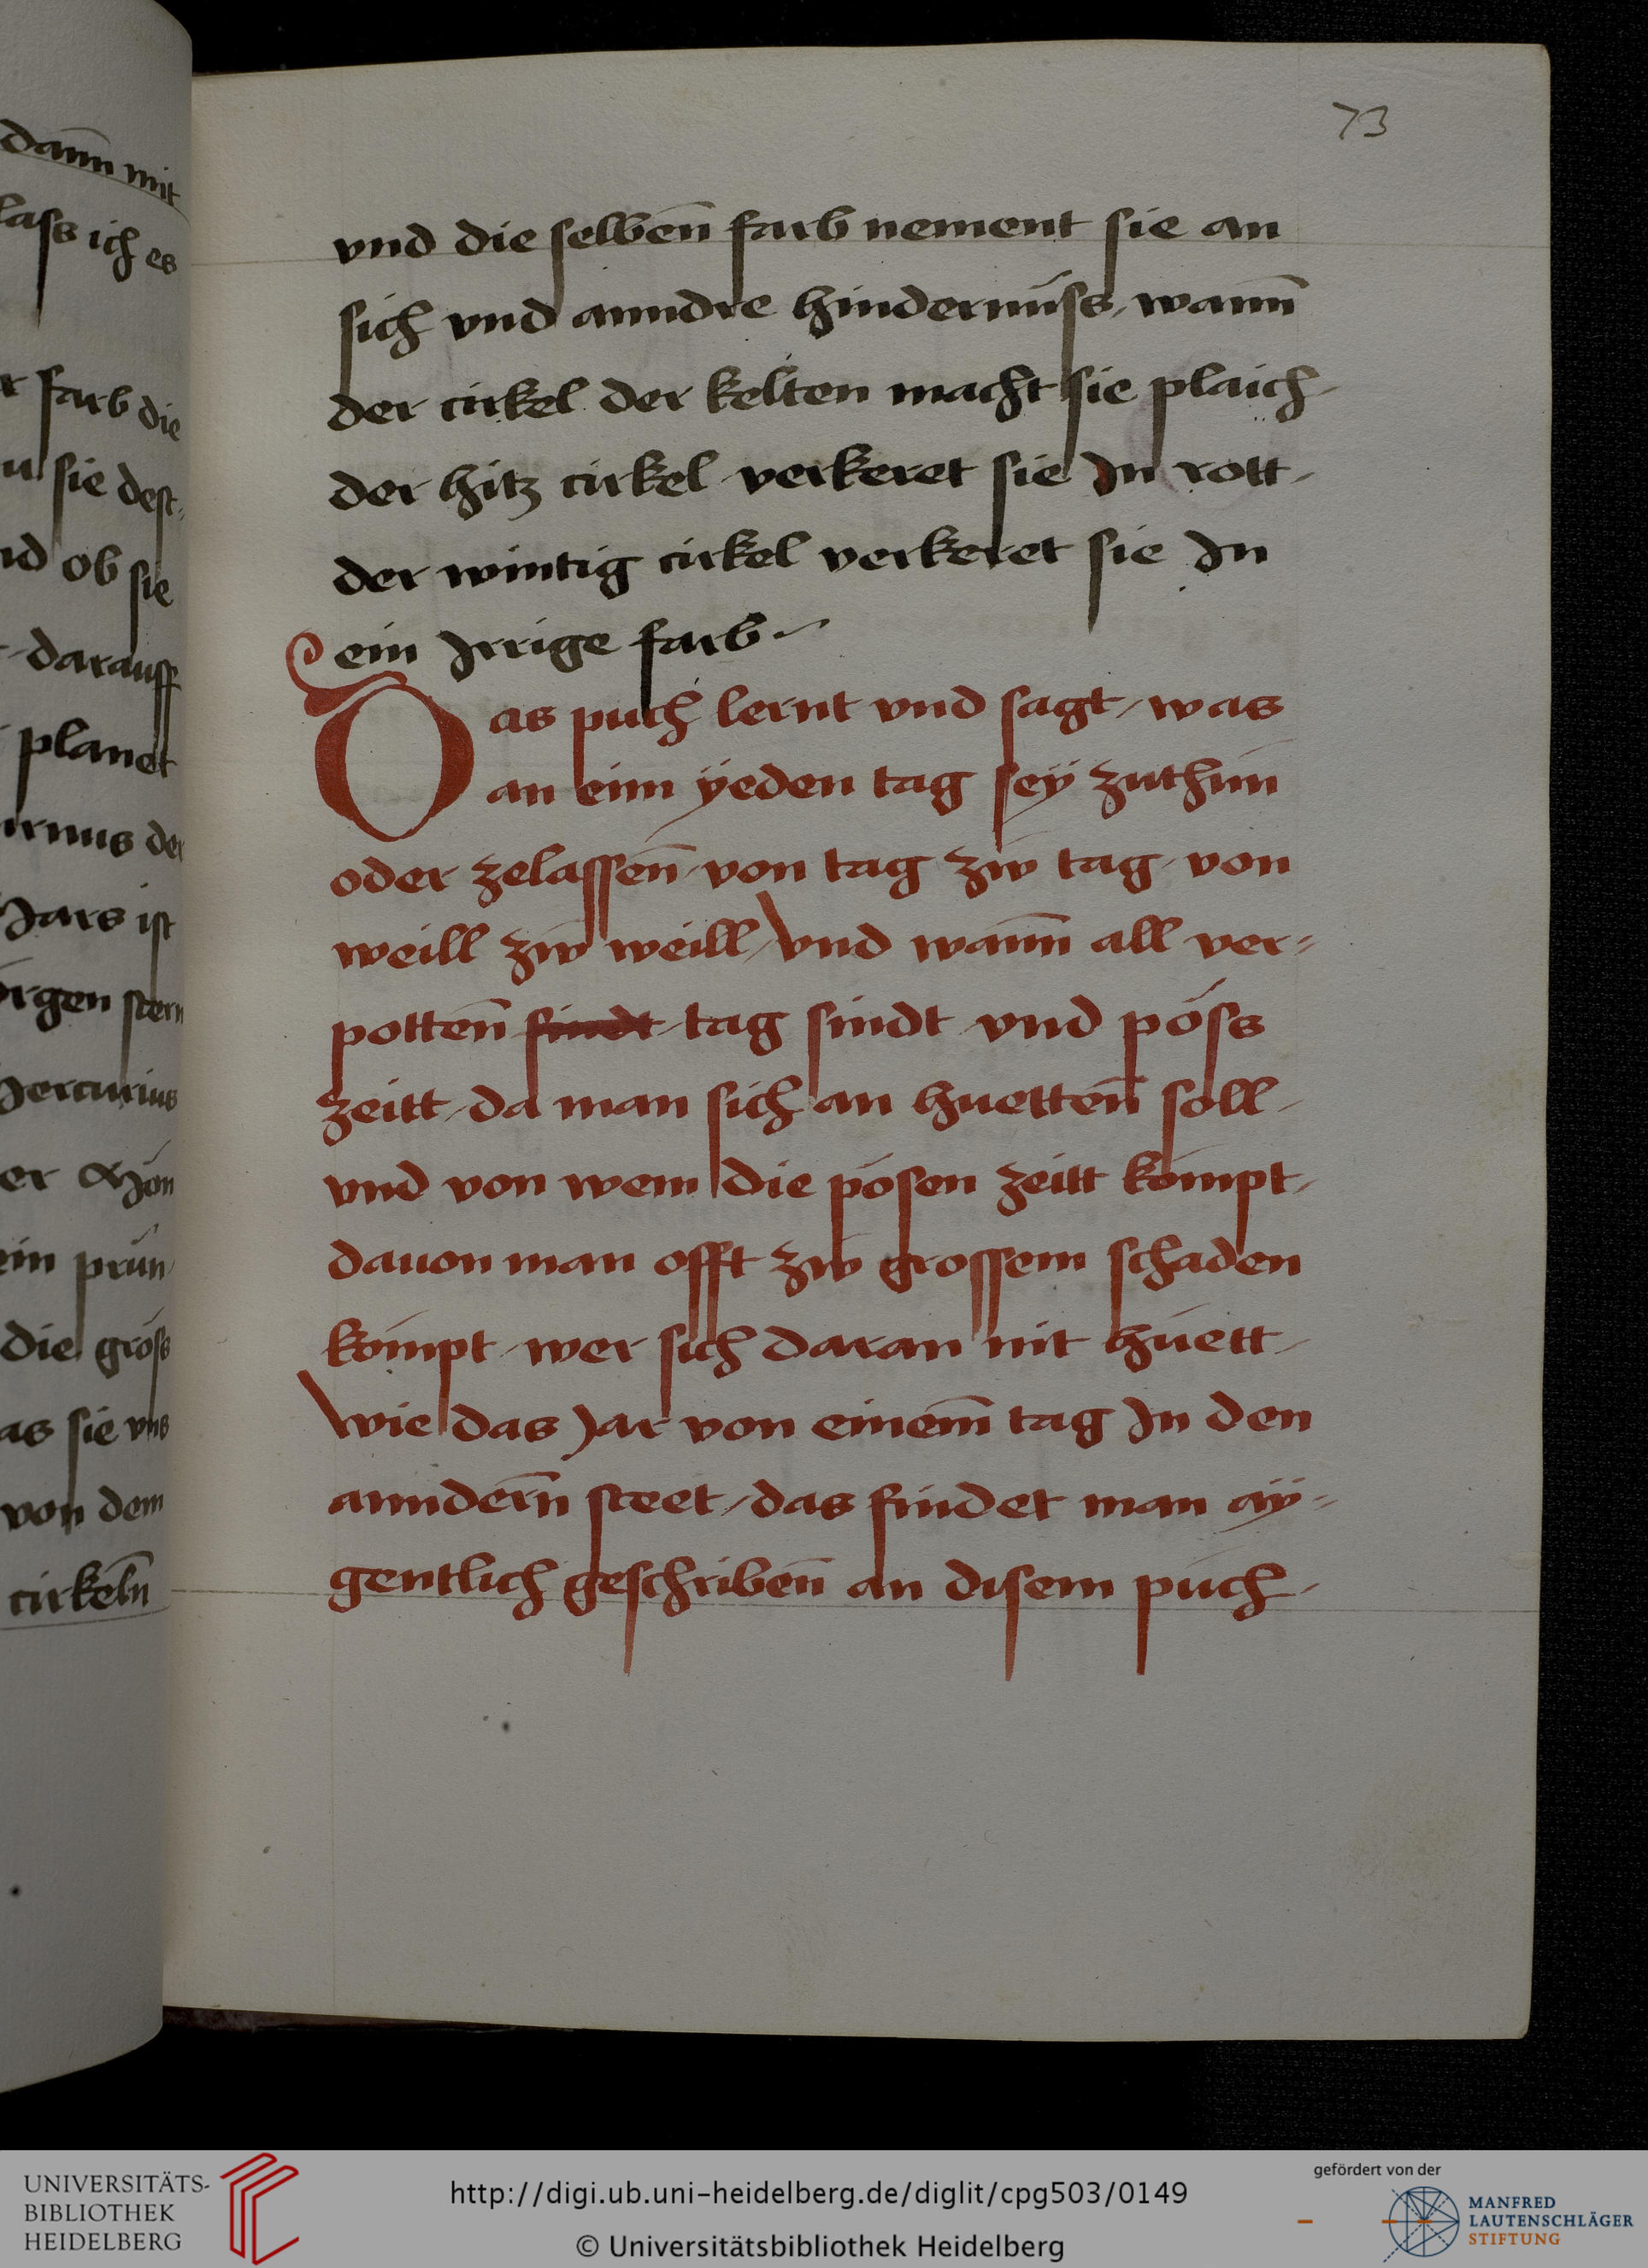 dan̄n mit
lass ich es
r farb die
sie dest=
nd ob sie
darauff
planet
ars ist
rgen stern
ercurius
er Mon
ein prun
die gross
as sie vns
von dem
cirkeln̄
73
vnd die selben̄ farb nement sie an
sich vnd anndre hindernüss, wan̄n
der cirkel der kelten macht sie plaich
der hitz cirkel verkeret sie In rott
der wintig cirkel verkeret sie In
ein Irrige farb
Das puch lernt vnd sagt / was
an eim yeden tag sey zuthun
oder zelassen̄ von tag zw tag von
weill zw weill / vnd wan̄n all ver=
potten̄ findt tag sindt vnd poss
zeitt da man sich an huetten̄ soll
vnd von wem die posen zeitt kompt
dauon man offt zw grossem schaden
kompt wer sich daran nit huett
wie das Jar von einem̄ tag In den
anndern̄ steet / das findet man ay=
gentlich geschriben̄ an disem puch
UNIVERSITÄTS-
BIBLIOTHEK
HEIDELBERG
http://digi.ub.uni-heidelberg.de/diglit/cpg503/0149
© Universitätsbibliothek Heidelberg
gefördert von der
MANFRED
LAUTENSCHLÄGER
STIFTUNG